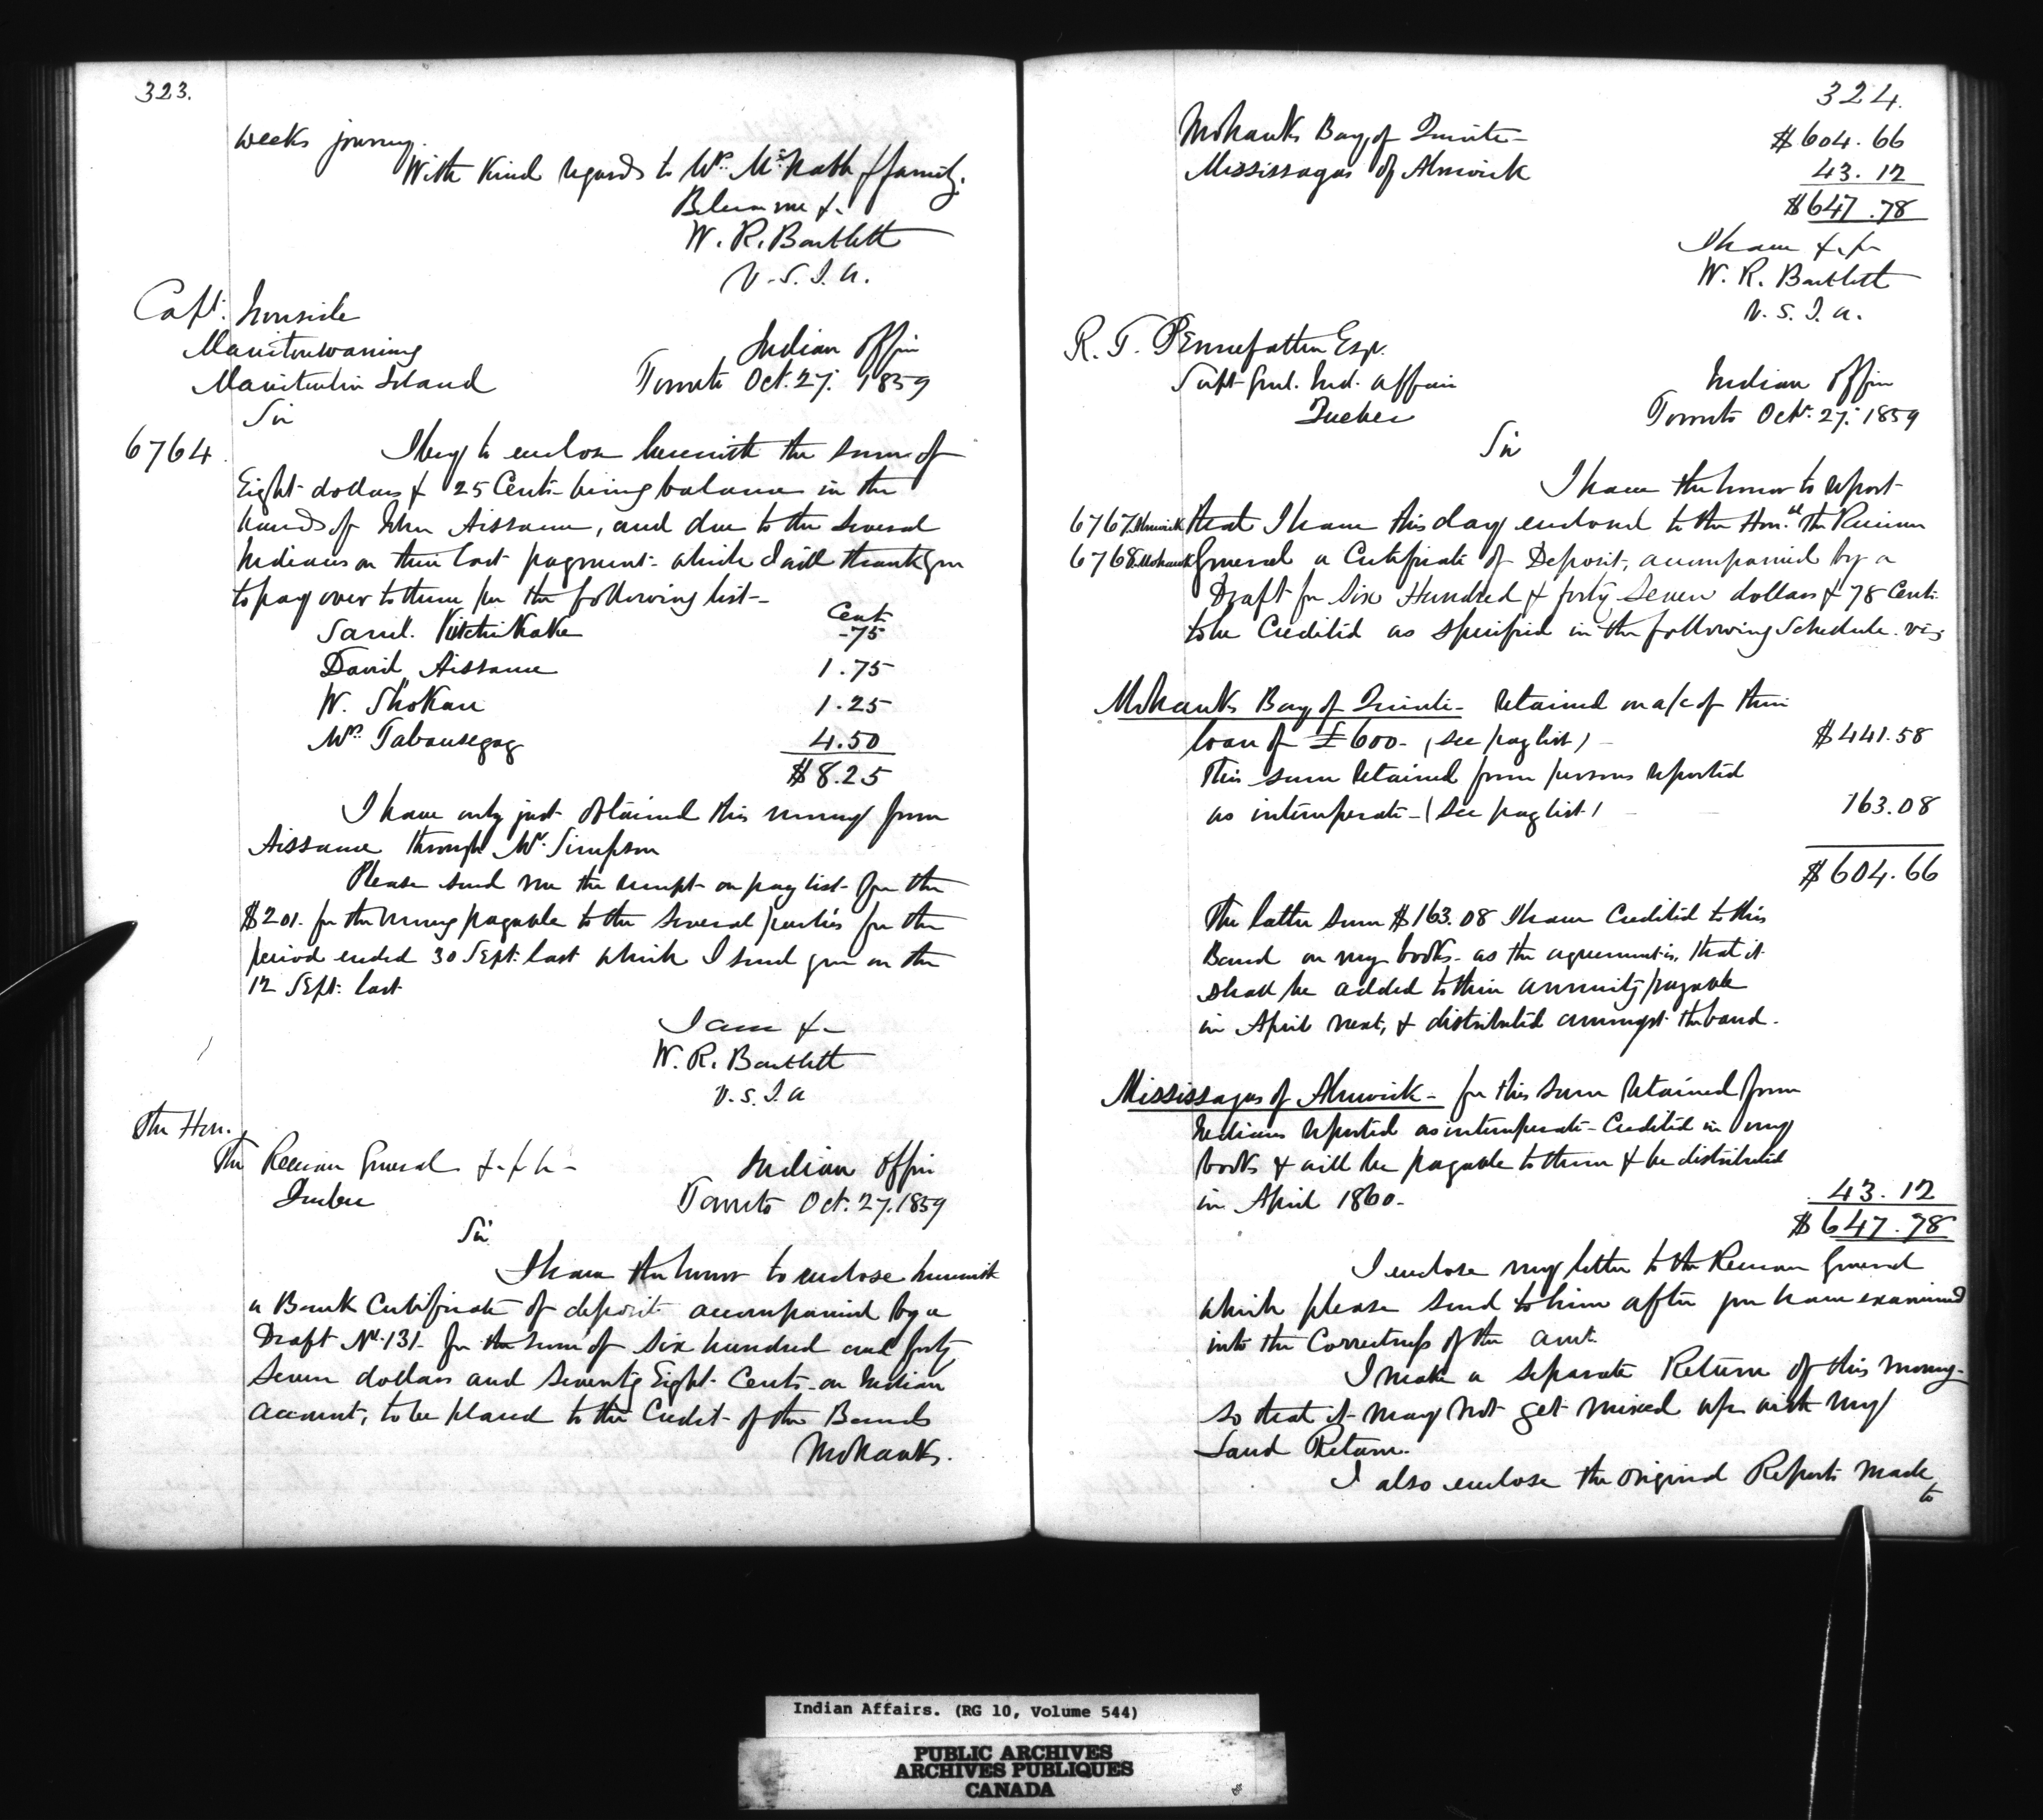 323.
weeks journey.
With Kind regards to Mr. McNabb & family.
Believe me &c
W. R. Bartlett
V. S. I. A.
Capt. Ironside
Manitowaning
Manitoulin Island
Indian Office
Toronto Oct. 27. 1859
Sir
6764
I beg to enclose herewith the sum of
Eight dollars & 25 Cents being balance in the
hands of John Aissance, and due to the several
Indians on their last payment which I will thank you
to pay over to them per the following list
Cents
Saml. Kitchikake -75
David Aissance 1.75
W. Shokan 1.25
Wm. Tabausegay 4.50
$8.25
I have only just obtained this money from
Aissance through Mr. Simpson
Please send me the receipt on pay list for the
$201. for the money payable to the several parties for the
period ended 30 Sept. last which I send you on the
12 Sept. last
I am &c
W. R. Bartlett
V. S. I. A
The Hon.
The Receiver General &c &c &c
Quebec
Indian Office
Toronto Oct. 27. 1859
Sir
I have the honor to enclose herewith
a Bank Certificate of deposit accompanied by a
Draft No. 131. for the sum of six hundred and forty
seven dollars and seventy Eight Cents on Indian
account, to be placed to the Credit of the Bands
Mohawks.
324.
Mohawks Bay of Quinte $604.66
Mississagas of Alnwick 43.12
$647.78
I have &c &c
W. R. Bartlett
V. S. I. A.
R. T. Pennefather Esqr.
Supt Genl. Ind. Affairs
Quebec
Indian Office
Toronto Oct. 27. 1859
Sir
I have the honor to report
6767 Alnwick that I have this day enclosed to the Hon. the Receiver
6768 Mohawk General a Certificate of Deposit, accompanied by a
Draft for Six Hundred & forty Seven dollars & 78 Cents
to be Credited as specified in the following Schedule. viz
Mohawks Bay of Quinte - retained on a/c of their
loan of £600 - (see pay list) $441.58
This sum retained from persons reported
as intemperate - (see pay list) 163.08
$604.66
The latter sum $163.08 I have Credited to this
Band on my books - as the agreement is, that it
shall be added to their annuity payable
in April next, & distributed amongst the band.
Mississagas of Alnwick - for this sum retained from
Indians reported as intemperate - Credited in my
books & will be payable to them & be distributed
in April 1860. 43.12
$647.78
I enclose my letter to the Receiver General
which please send to him after you have examined
into the Correctness of the amt.
I make a separate Return of this money -
so that it may not get mixed up with my
Land Return.
I also enclose the original Reports made
to
Indian Affairs. (RG 10, Volume 544)
PUBLIC ARCHIVES
ARCHIVES PUBLIQUES
CANADA